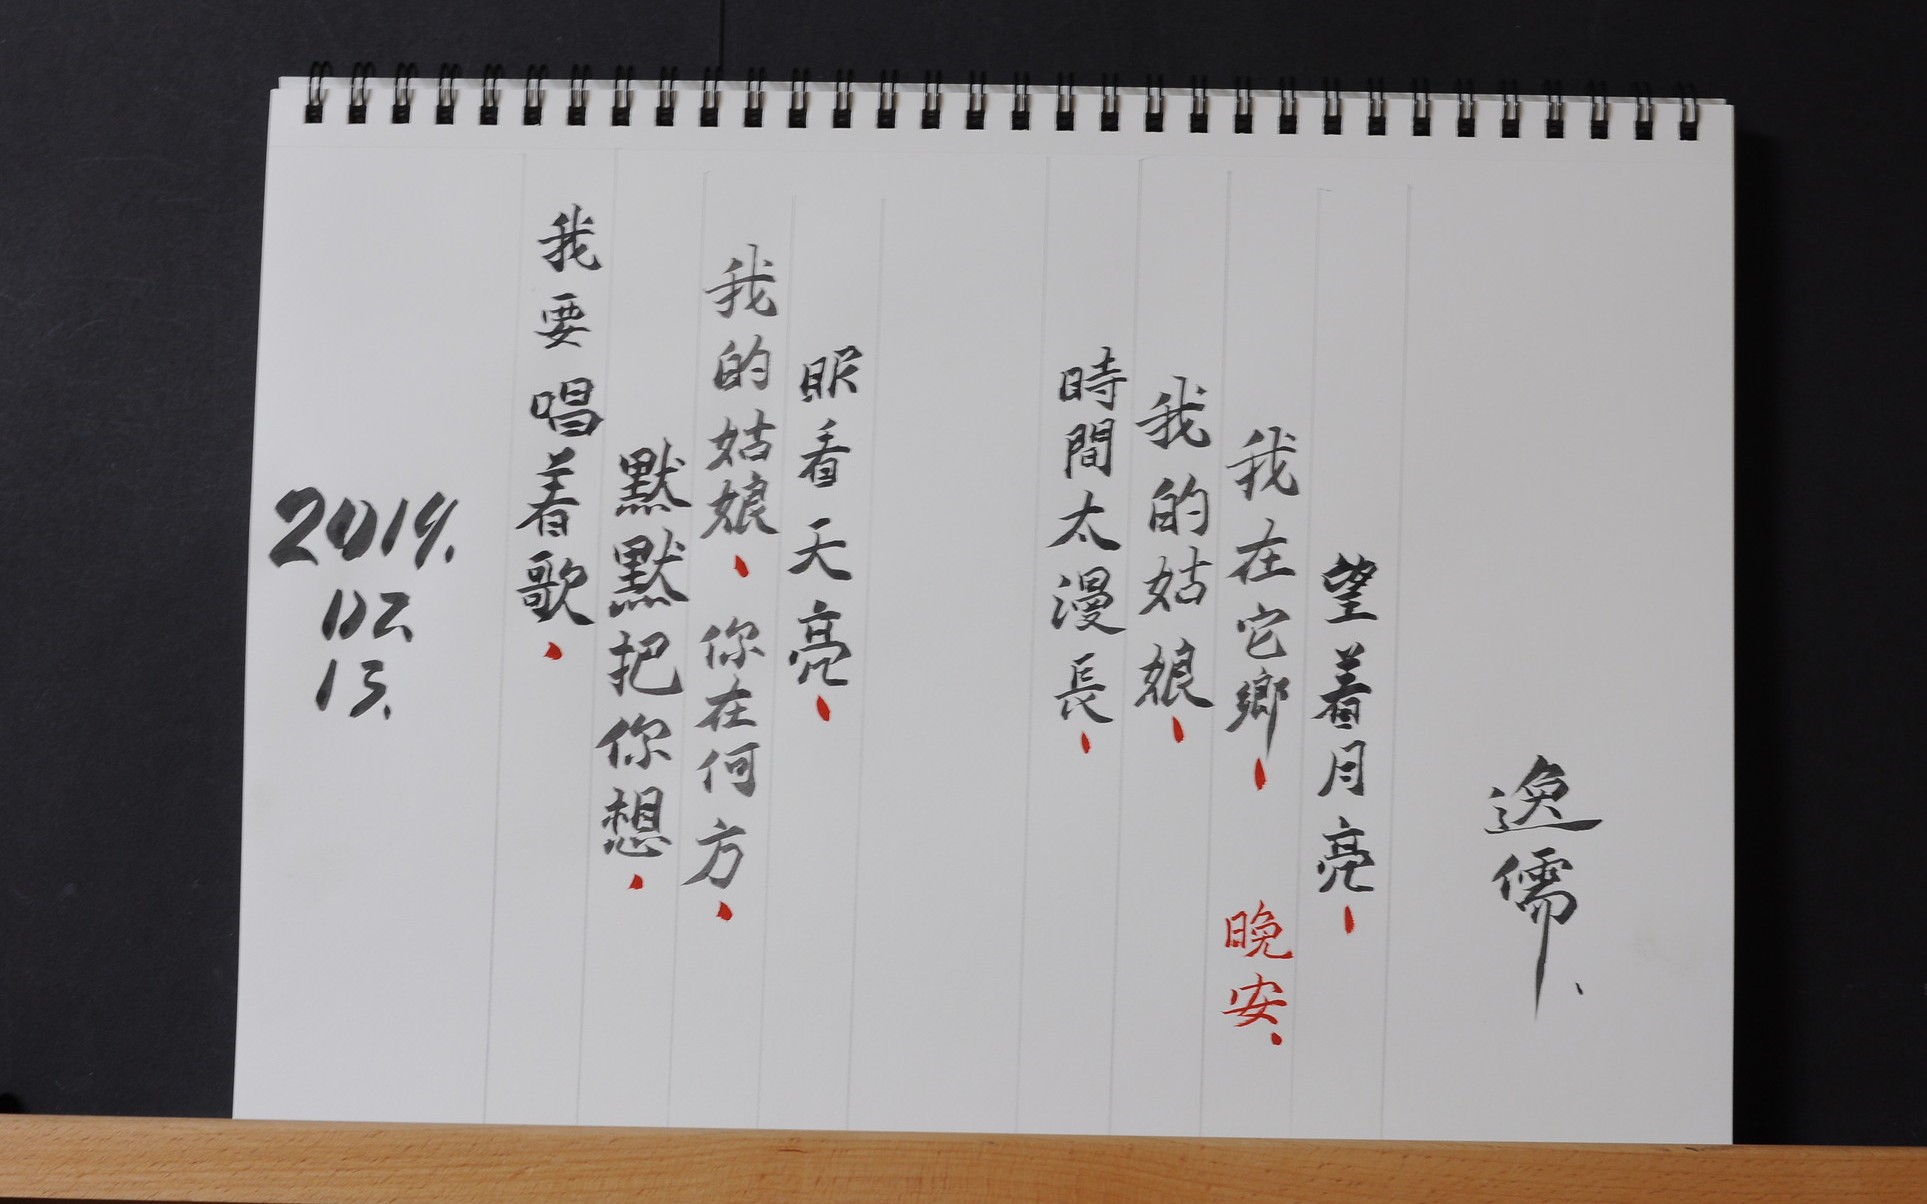 逸儒、
望着月亮、
我在它鄉、晚安、
我的姑娘、
時間太漫長、
眼看天亮、
我的姑娘、你在何方、
默默把你想、
我要唱着歌、
2019.
02.
15.